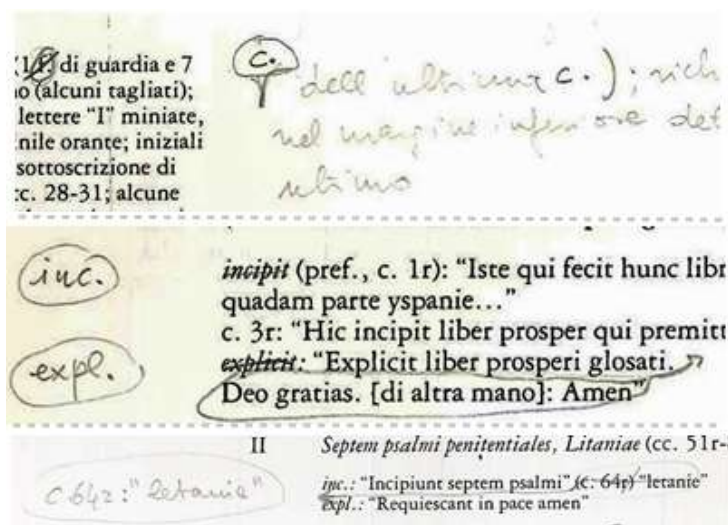 (1 f. di guardia e 7
no (alcuni tagliati);
lettere "I" miniate,
nile orante; iniziali
sottoscrizione di
cc. 28-31; alcune
c.
dell'ultima c.); rich
nel margine inferiore del
ultimo
inc.
expl.
incipit (pref., c. 1r): "Iste qui fecit hunc libr
quadam parte yspanie..."
c. 3r: "Hic incipit liber prosper qui premitt
explicit: "Explicit liber prosperi glosati.
Deo gratias. [di altra mano]: Amen"
II Septem psalmi penitentiales, Litaniae (cc. 51r-
c 64r: "letanie"
inc.: "Incipiunt septem psalmi" (c. 64r) "letanie"
expl.: "Requiescant in pace amen"